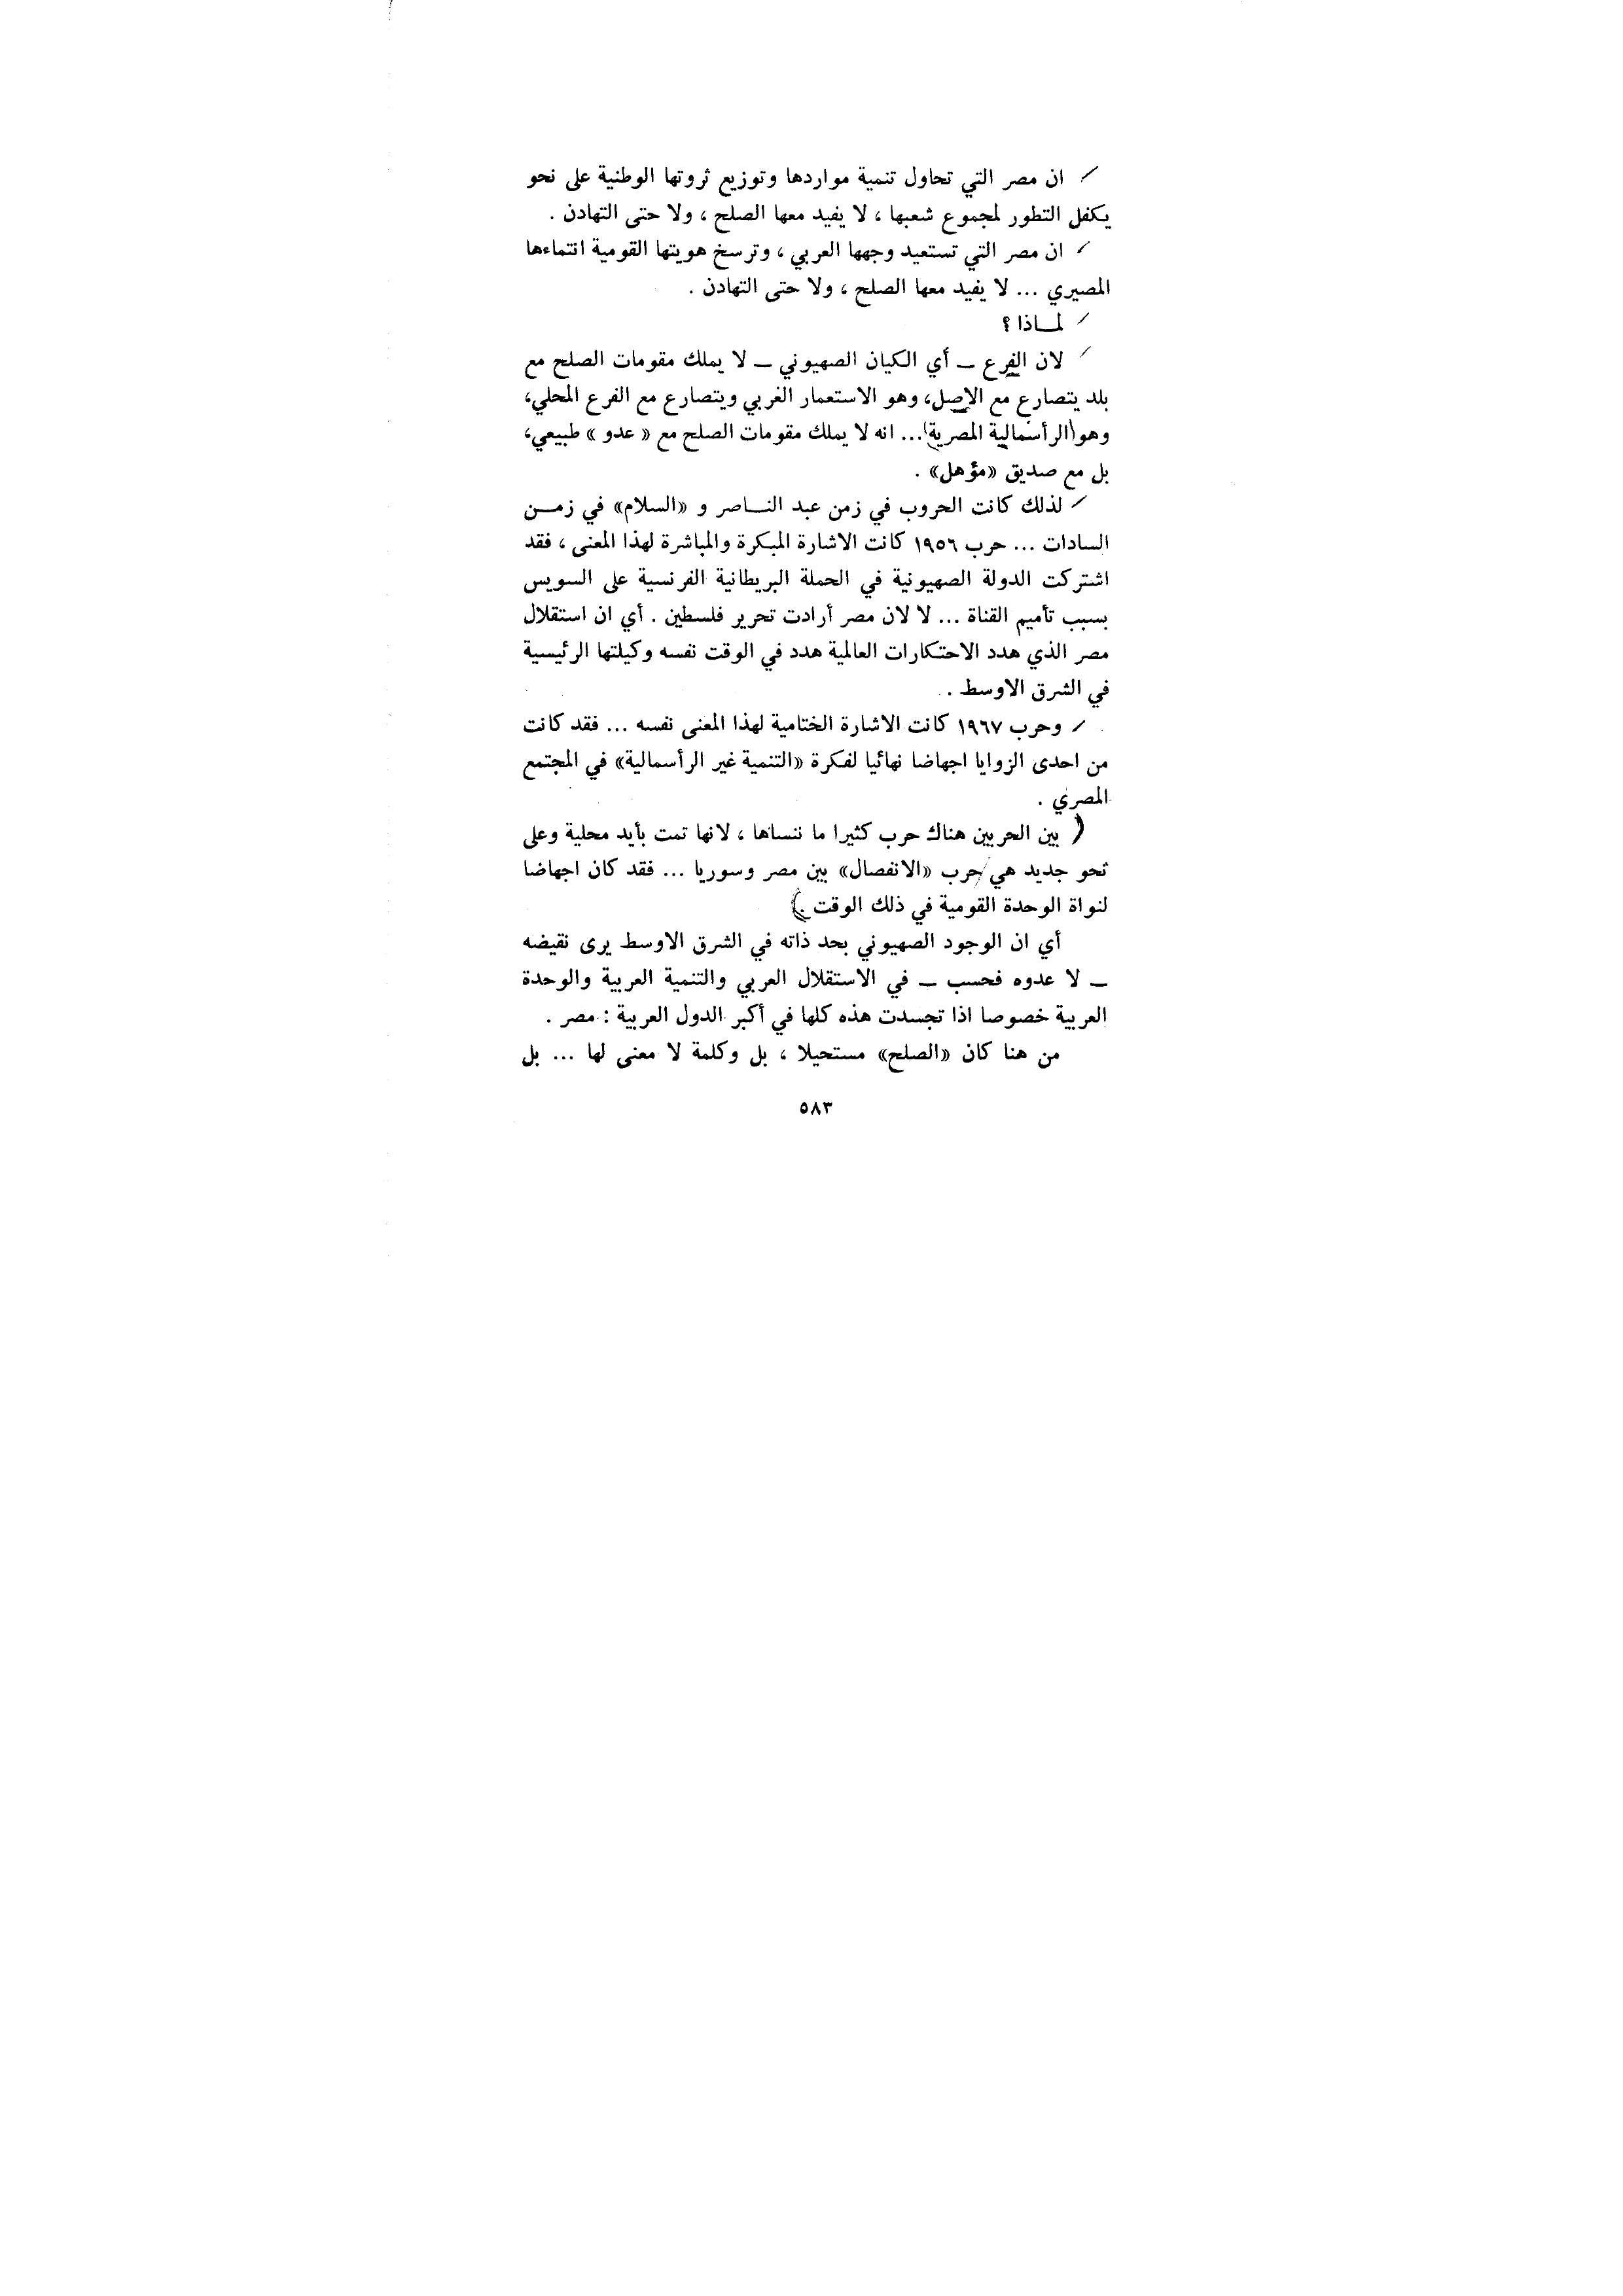 ان مصر التي تحاول تنمية مواردها وتوزيع ثروتها الوطنية على نحو
يكفل التطور لمجموع شعبها ، لا يفيد معها الصلح ، ولا حتى التهادن .
ان مصر التي تستعيد وجهها العربي ، وترسخ هويتها القومية انتماءها
المصيري ... لا يفيد معها الصلح ، ولا حتى التهادن .
لمـاذا ؟
لان الفرع ــ أي الكيان الصهيوني ــ لا يملك مقومات الصلح مع
بلد يتصارع مع الاصل، وهو الاستعمار الغربي ويتصارع مع الفرع المحلي،
وهو (الرأسمالية المصرية) ... انه لا يملك مقومات الصلح مع « عدو » طبيعي،
بل مع صديق «مؤهل» .
لذلك كانت الحروب في زمن عبد النـاصر و «السلام» في زمـن
السادات ... حرب ١٩٥٦ كانت الاشارة المبكرة والمباشرة لهذا المعنى ، فقد
اشتركت الدولة الصهيونية في الحملة البريطانية الفرنسية على السويس
بسبب تأميم القناة ... لا لان مصر أرادت تحرير فلسطين . أي ان استقلال
مصر الذي هدد الاحتكارات العالمية هدد في الوقت نفسه وكيلتها الرئيسية
في الشرق الاوسط .
وحرب ١٩٦٧ كانت الاشارة الختامية لهذا المعنى نفسه ... فقد كانت
من احدى الزوايا اجهاضا نهائيا لفكرة «التنمية غير الرأسمالية» في المجتمع
المصري .
( بين الحربين هناك حرب كثيرا ما ننساها ، لانها تمت بأيد محلية وعلى
نحو جديد هي حرب «الانفصال» بين مصر وسوريا ... فقد كان اجهاضا
لنواة الوحدة القومية في ذلك الوقت .)
أي ان الوجود الصهيوني بحد ذاته في الشرق الاوسط يرى نقيضه
ــ لا عدوه فحسب ــ في الاستقلال العربي والتنمية العربية والوحدة
العربية خصوصا اذا تجسدت هذه كلها في أكبر الدول العربية : مصر .
من هنا كان «الصلح» مستحيلا ، بل وكلمة لا معنى لها ... بل
٥٨٣